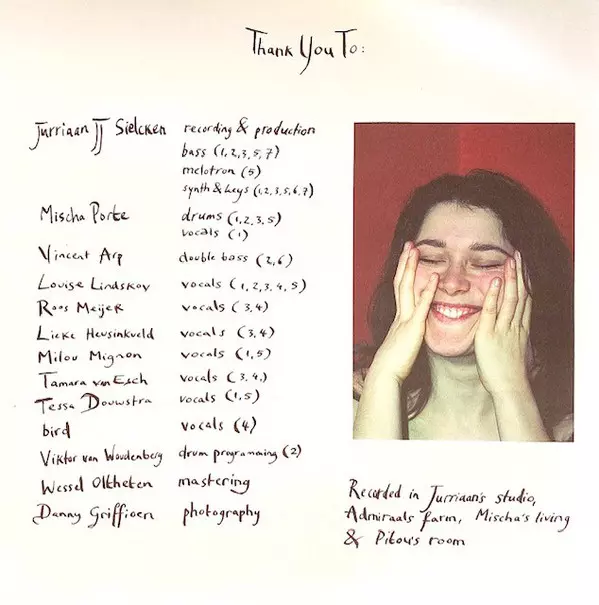 Thank You To:
Jurriaan JJ Sielcken recording & production
bass (1,2,3,5,7)
melotron (5)
synth & keys (1,2,3,5,6,7)
Mischa Porte drums (1,2,3,5)
vocals (1)
Vincent Arp double bass (2,6)
Louise Lindskov vocals (1,2,3,4,5)
Roos Meijer vocals (3,4)
Lieke Heusinkveld vocals (3,4)
Milou Mignon vocals (1,5)
Tamara van Esch vocals (3,4)
Tessa Douwstra vocals (1,5)
bird vocals (4)
Viktor van Woudenberg drum programming (2)
Wessel Oltheten mastering
Danny Griffioen photography
Recorded in Jurriaan's studio,
Admiraals farm, Mischa's living
& Pitou's room